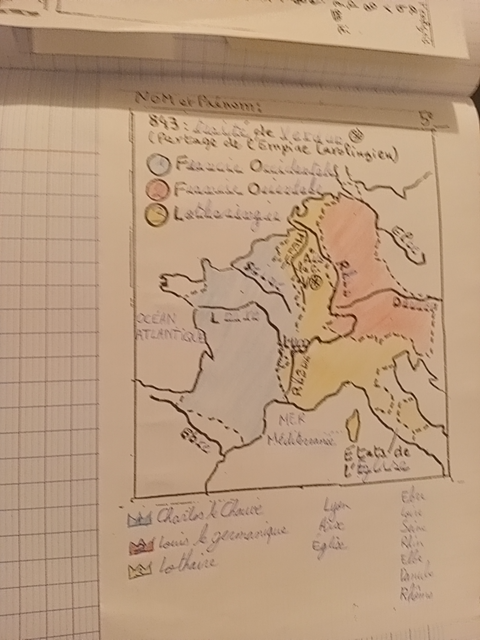 NOM et Prénom: 5e
843: traité de Verdun
(Partage de l'Empire Carolingien)
Francie Occidentale
Francie Orientale
Lotharingie
Elbe
Seine
Rhin
Danube
OCÉAN
ATLANTIQUE
Loire
Lyon
Rhône
MER
Méditerranée
Ebre
Etats de
L'Église
Charles le Chauve
Louis le germanique
Lothaire
Lyon
Aix
Église
Ebre
Loire
Seine
Rhin
Elbe
Danube
Rhône